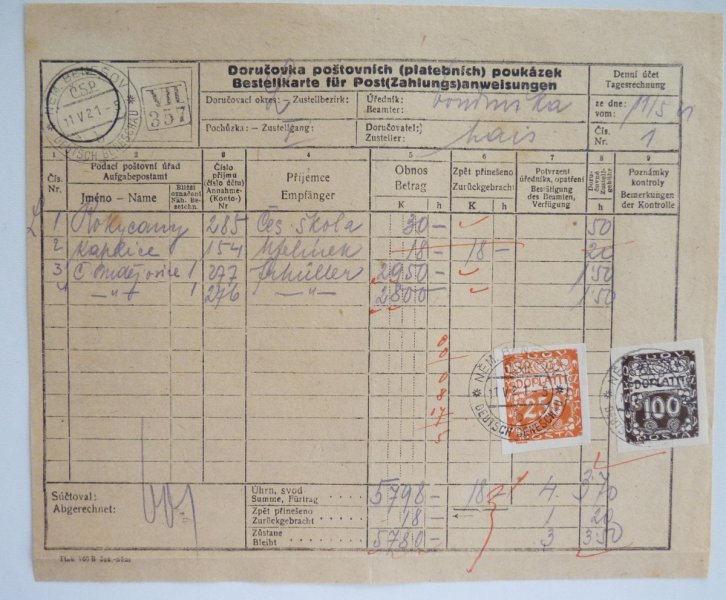 NĚM. BENEŠOV
Č.S.P.
11 V 21
DEUTSCH BENESCHAU
VII
357
Doručovka poštovních (platebních) poukázek
Bestellkarte für Post(Zahlungs)anweisungen
Denní účet
Tagesrechnung
Doručovací okres: Zustellbezirk:
Úředník:
Beamter:
ze dne:
vom: 11/5 21
Pochůzka: — Zustellgang:
Doručovatel:
Zusteller:
Čís.
Nr. 1
1 2 3 4 5 6 7 8 9
Čís.
Nr.
Podací poštovní úřad
Aufgabepostamt
Jméno - Name
Bližší
označení
Näh. Be-
zeichn.
Číslo
příjmu
(číslo účtu)
Annahme-
(Konto-)
Nr.
Příjemce
Empfänger
Obnos
Betrag
K h
Zpět přineseno
Zurückgebracht
K h
Potvrzení
úředníka, opatření
Bestätigung
des Beamten,
Verfügung
h
Poznámky
kontroly
Bemerkungen
der Kontrolle
1 Rokycany 285 Čes. škola 30 — 50
2 Kaplice 154 18 — 18 — 20
3 Č Budějovice 1 277 Schüller 2950 — 150
4 — „ — 1 276 — „ — 2800 150
NĚM. BENEŠOV
Č.S.P.
11 V 21
DOPLATIT
25
DEUTSCH BENESCHAU
DOPLATIT
100
Súčtoval:
Abgerechnet:
Úhrn, svod
Summe, Fürtrag 5798 — 18 — 4 370
Zpět přineseno
Zurückgebracht 18 — 1 20
Zůstane
Bleibt 5780 — 3 350